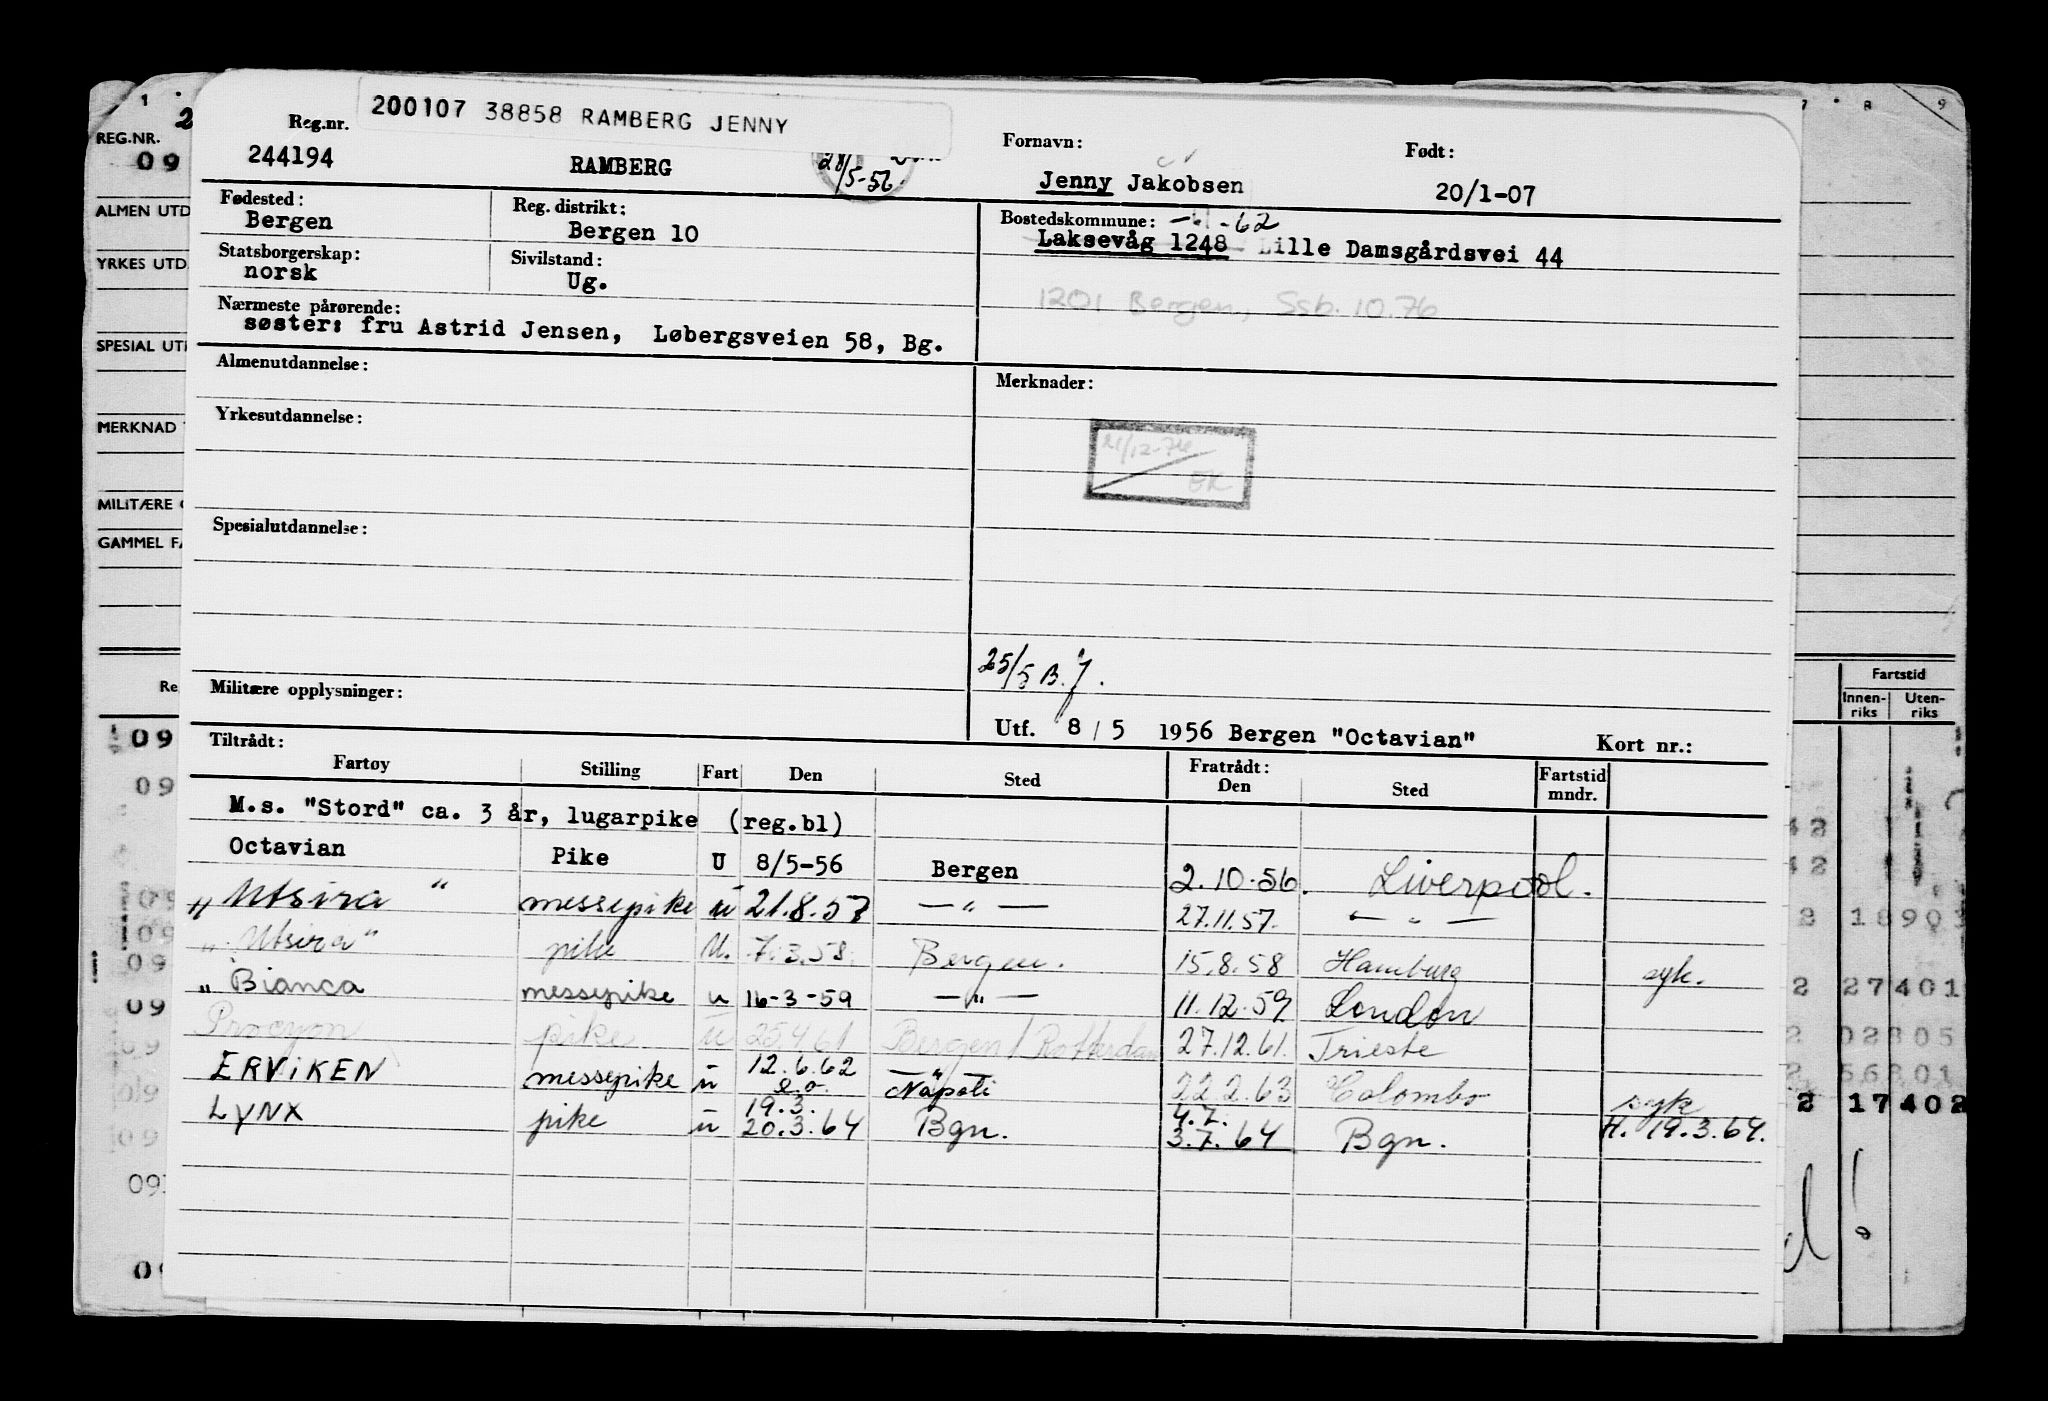 200107 38858 RAMBERG JENNY
Reg.nr.
244194
RAMBERG
28/5-56.
Fornavn:
Jenny Jakobsen
Født:
20/1-07
Fødested:
Bergen
Reg. distrikt:
Bergen 10
Bostedskommune: -62
Laksevåg 1248 Lille Damsgårdsvei 44
Statsborgerskap:
norsk
Sivilstand:
Ug.
1201 Bergen, Ssb. 10.76
Nærmeste pårørende:
søster: fru Astrid Jensen, Løbergsveien 58, Bg.
Almenutdannelse:
Merknader:
Yrkesutdannelse:
21/12-76
EK
Spesialutdannelse:
25/5 B.J.
Militære opplysninger:
Utf. 8/5 1956 Bergen "Octavian"
Kort nr.:
Tiltrådt:
Fartøy Stilling Fart Den Sted
Fratrådt:
Den Sted
Fartstid
mndr.
M.s. "Stord" ca. 3 år, lugarpike (reg.bl)
Octavian Pike U 8/5-56 Bergen 2.10.56. Liverpool.
"Utsira" messepike u 21.8.57 —"— 27.11.57. —"—
"Utsira" pike U. 7.3.58. Bergen. 15.8.58 Hamburg syk.
"Bianca messepike u 16-3-59 —"— 11.12.59 London
Procyon pike u 25.4.61 Bergen/Rotterdam 27.12.61. Trieste
ERVIKEN messepike u 12.6.62 e.o. Napoli 22.2.63 Colombo syk
LYNX pike u 19.3. 20.3.64 Bgn. 4.7. 3.7.64 Bgn. H. 19.3.64.
REG.NR. 2
09
ALMEN UTD
YRKES UTD
SPESIAL UT
MERKNAD
MILITÆRE
GAMMEL FA
Fartstid
Innen-
riks
Uten-
riks
09
09
2 18903
2 27401
2 02805
2 56801
2 17402